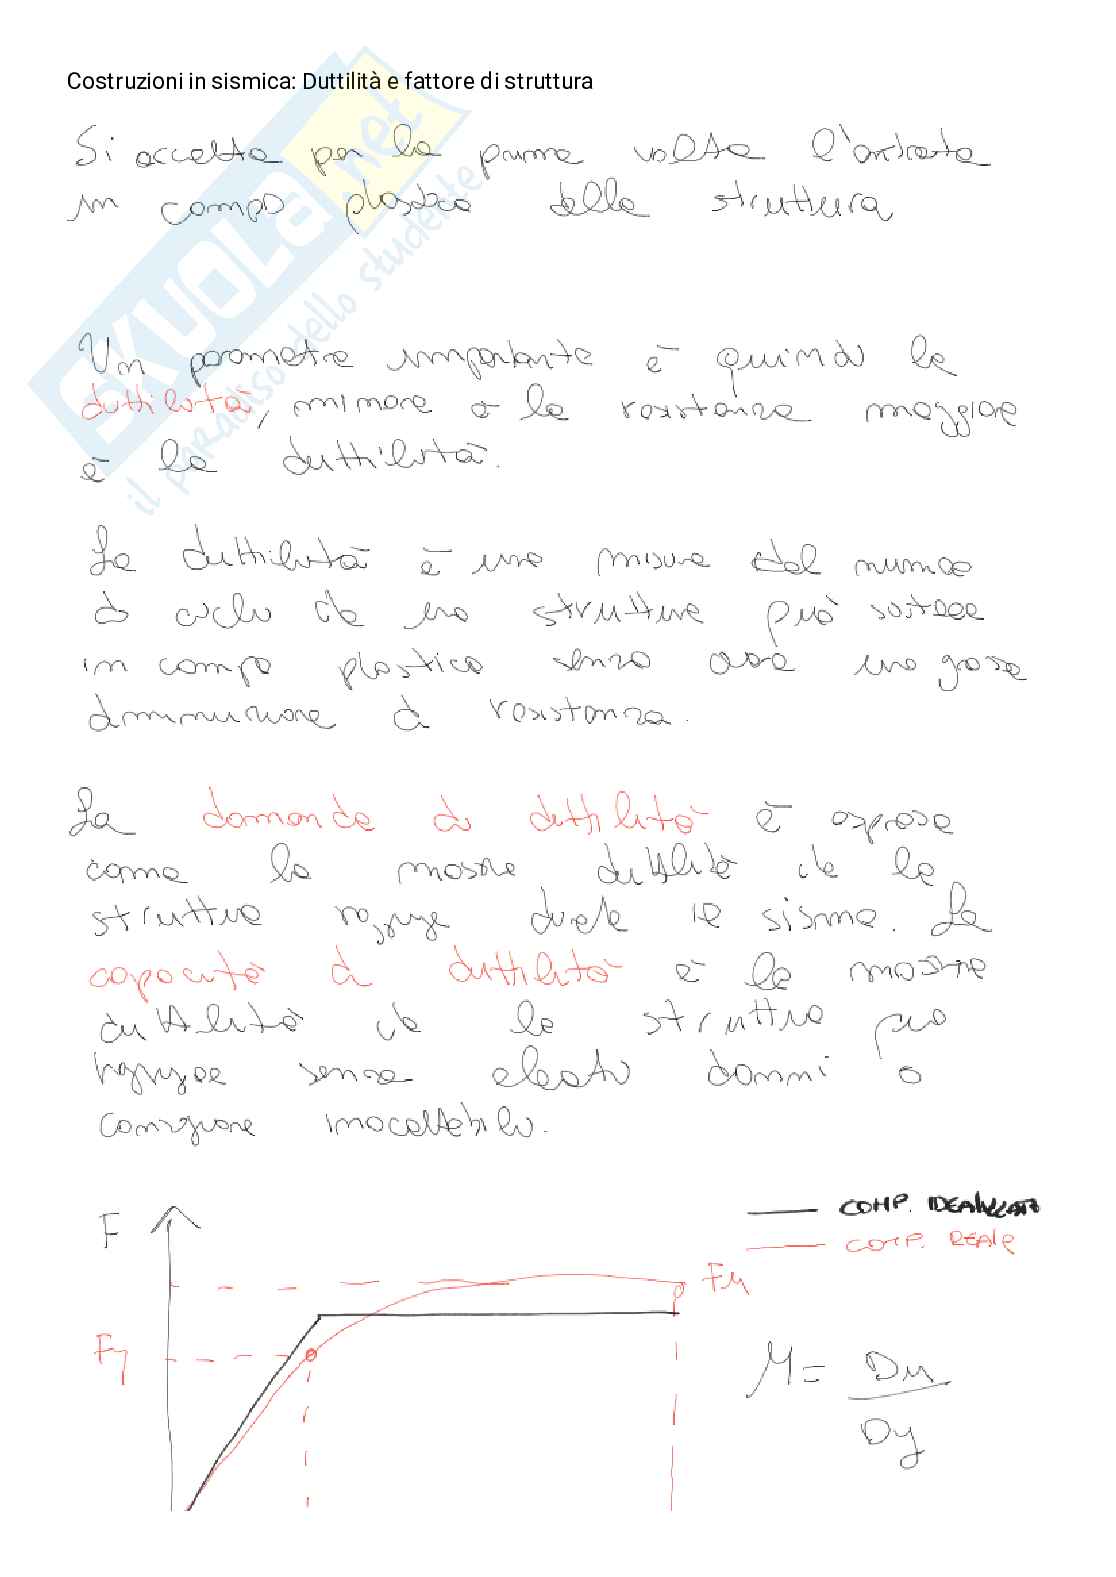 Costruzioni in sismica: Duttilità e fattore di struttura
Si accetta per la prima volta l'entrata
in campo plastico della struttura
Un parametro importante è quindi la
duttilità, minore è la resistenza maggiore
è la duttilità.
La duttilità è una misura del numero
di cicli che una struttura può sostenere
in campo plastico senza avere una grossa
diminuzione di resistenza.
La domanda di duttilità è espressa
come la massima duttilità che la
struttura raggiunge durante il sisma. La
capacità di duttilità è la massima
duttilità che la struttura può
raggiungere senza elevati danni o
inaccettabili.
COMP. IDEALIZZATO
COMP. REALE
F
Fu
Fy
μ = Du
Dy
SKUOLA.net
il paradiso dello studente